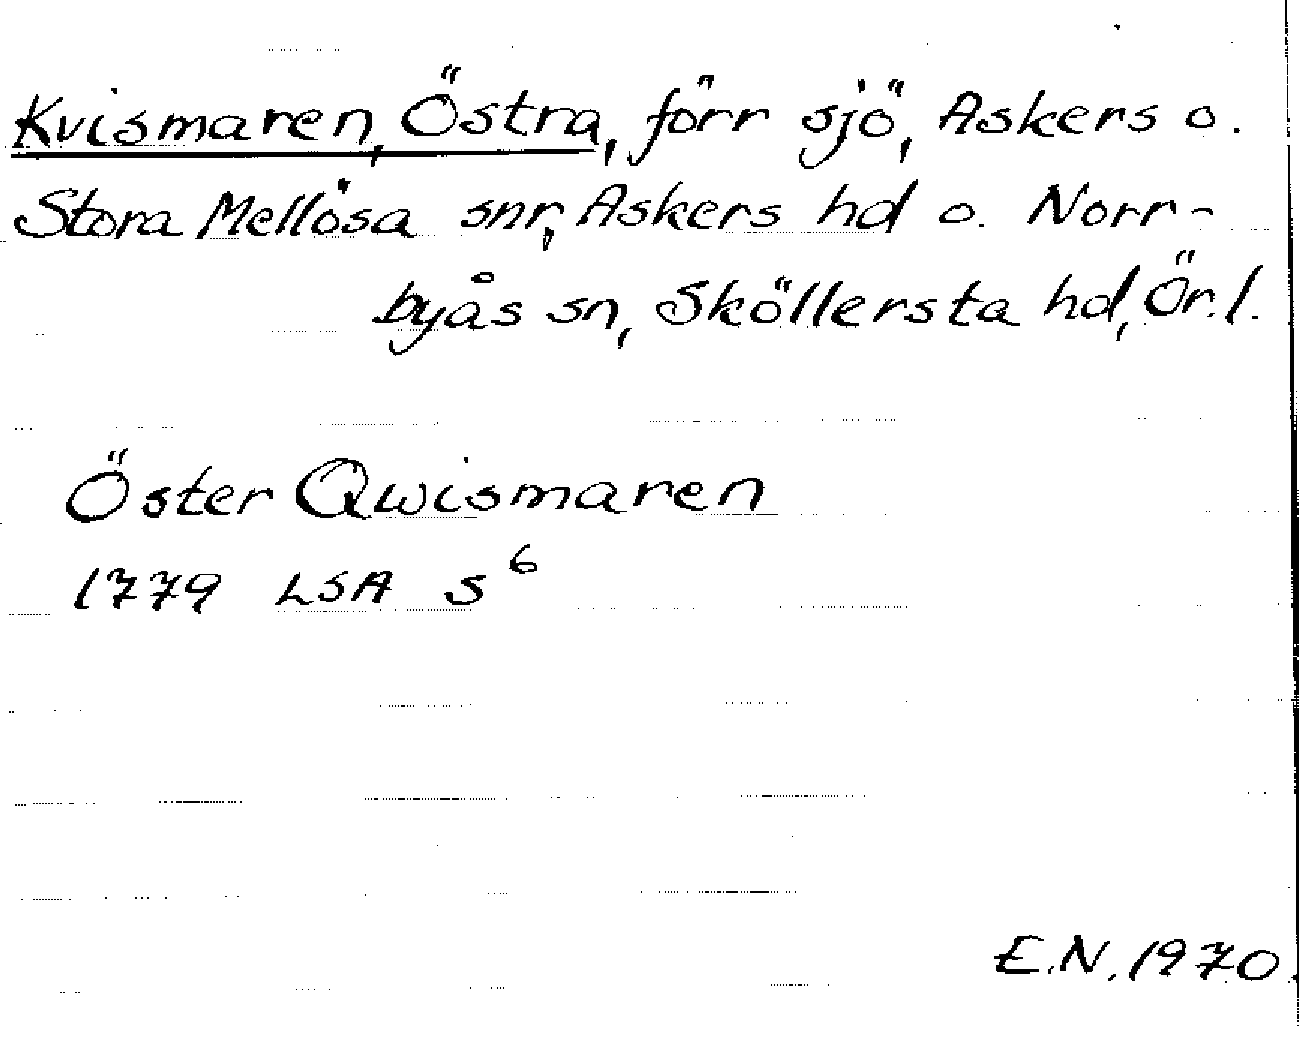 Kvismaren, Östra, förr sjö, Askers o.
Stora Mellösa snr, Askers hd o. Norr-
byås sn, Sköllersta hd, Ör. l.
Öster Qwismaren
1779 LSA S⁶
E.N. 1970.